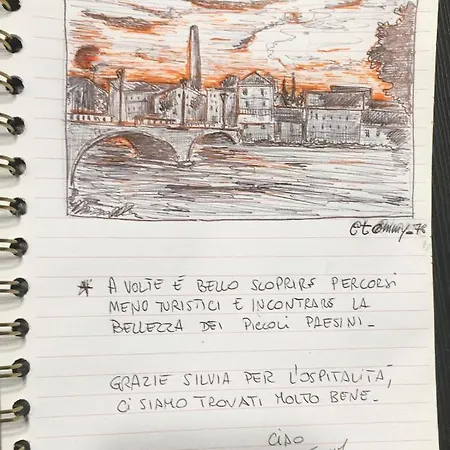 etommy_78
* A VOLTE É BELLO SCOPRIRE PERCORSI
MENO TURISTICI E INCONTRARE LA
BELLEZZA DEI PICCOLI PAESINI_
GRAZIE SILVIA PER L'OSPITALITÀ,
CI SIAMO TROVATI MOLTO BENE_
CIAO